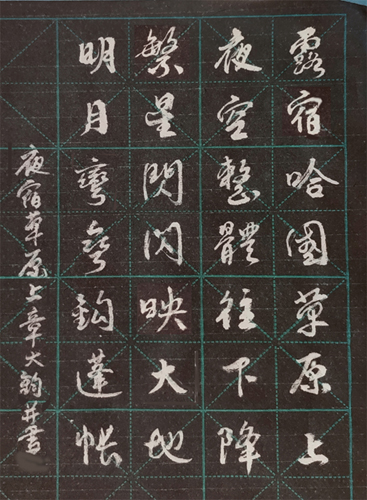 露宿哈國草原上
夜空整體往下降
繁星閃閃映大地
明月彎彎鈎蓬帳
夜宿草原上章大鈞并書